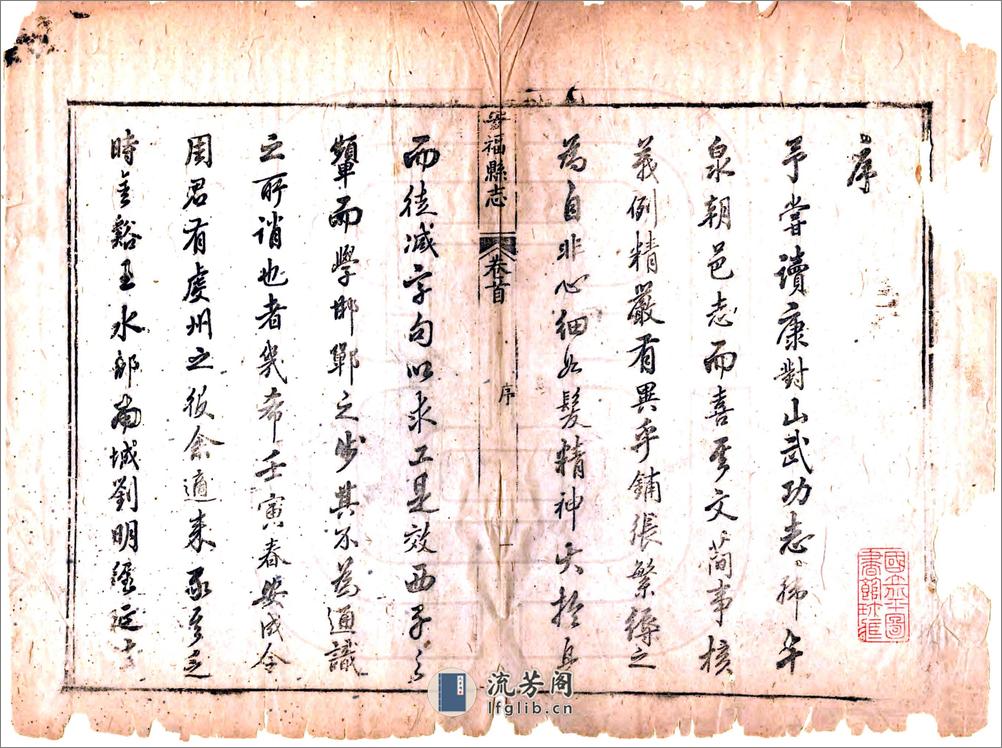 序
予嘗讀康對山武功志韓午
泉朝邑志而喜其文簡事核
義例精嚴有異乎鋪張繁縟之
為自非心細如髮精神大於身
而徒減字句以求工是效西子之
顰而學邯鄲之步其不為通識
之所誚也者幾希壬寅春安成令
周君有虔州之役余適來承其乏
時金谿王水部南城劉明經延古
安福縣志
卷首
序
一
國立北平圖書館珍藏
流芳阁
lfglib.cn